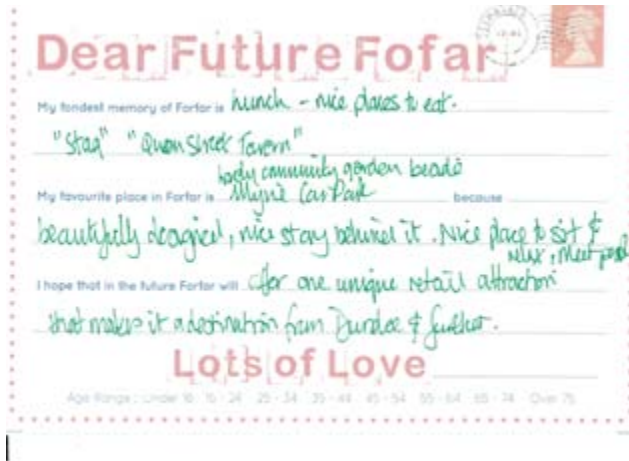 Dear Future Fofar
My fondest memory of Forfar is lunch - nice places to eat.
"Stag" "Queen Street Tavern"
lovely community garden beside
My favourite place in Forfar is Myre Car Park because
beautifully designed, nice story behind it. Nice place to sit &
relax, meet people
I hope that in the future Forfar will offer one unique retail attraction
that makes it a destination from Dundee & further.
Lots of Love
Age Range : Under 16 16 - 24 25 - 34 35 - 44 45 - 54 55 - 64 65 - 74 Over 75